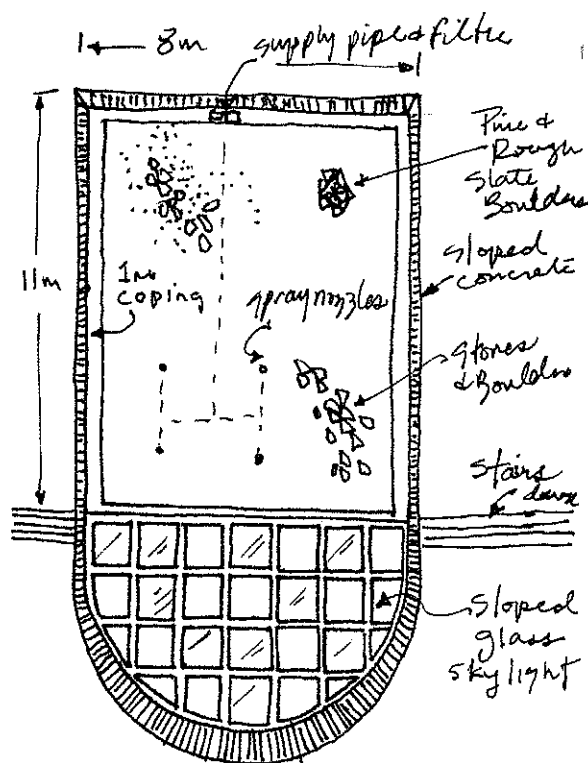 8m
supply pipe & filter
Pine &
Rough
Slate
Boulders
sloped
concrete
11m
1m
coping
spray nozzles
stones
& Boulders
stairs
down
sloped
glass
skylight